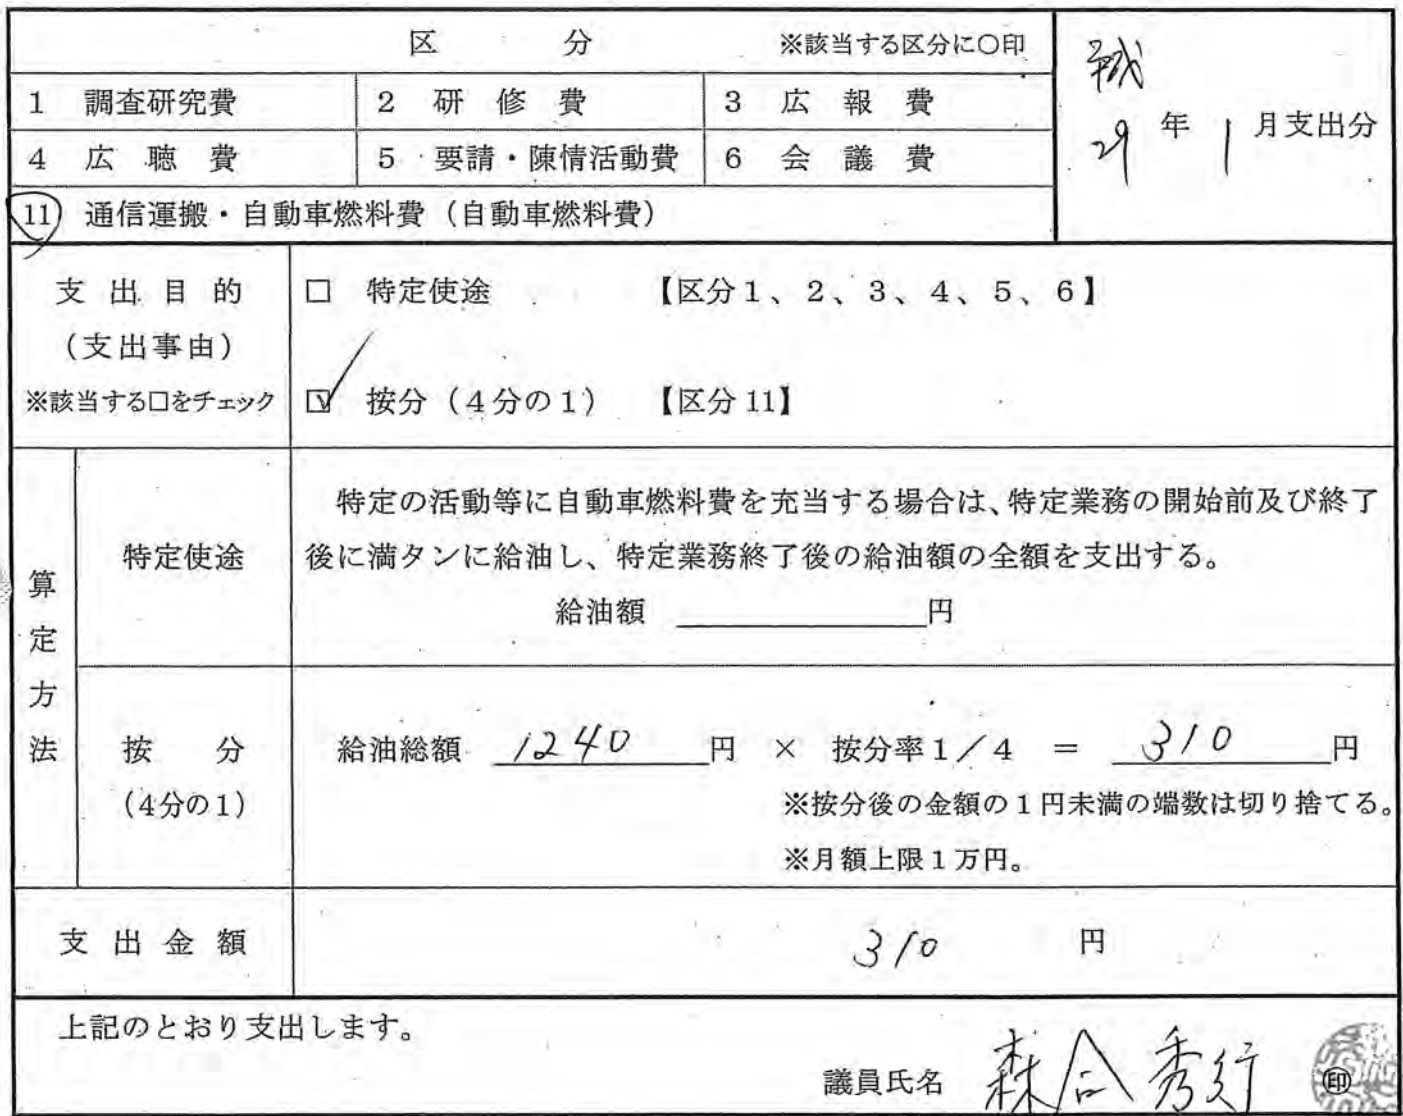 区　分　※該当する区分に○印
平成
29 年 1 月支出分
1 調査研究費　2 研修費　3 広報費
4 広聴費　5 要請・陳情活動費　6 会議費
11 通信運搬・自動車燃料費（自動車燃料費）
支出目的
（支出事由）
※該当する□をチェック
□ 特定使途　【区分1、2、3、4、5、6】
☑ 按分（4分の1）　【区分11】
算定方法
特定使途
特定の活動等に自動車燃料費を充当する場合は、特定業務の開始前及び終了
後に満タンに給油し、特定業務終了後の給油額の全額を支出する。
給油額　円
按分
（4分の1）
給油総額 1240 円 × 按分率1／4 ＝ 310 円
※按分後の金額の1円未満の端数は切り捨てる。
※月額上限1万円。
支出金額　310 円
上記のとおり支出します。
議員氏名 森合秀行 ㊞